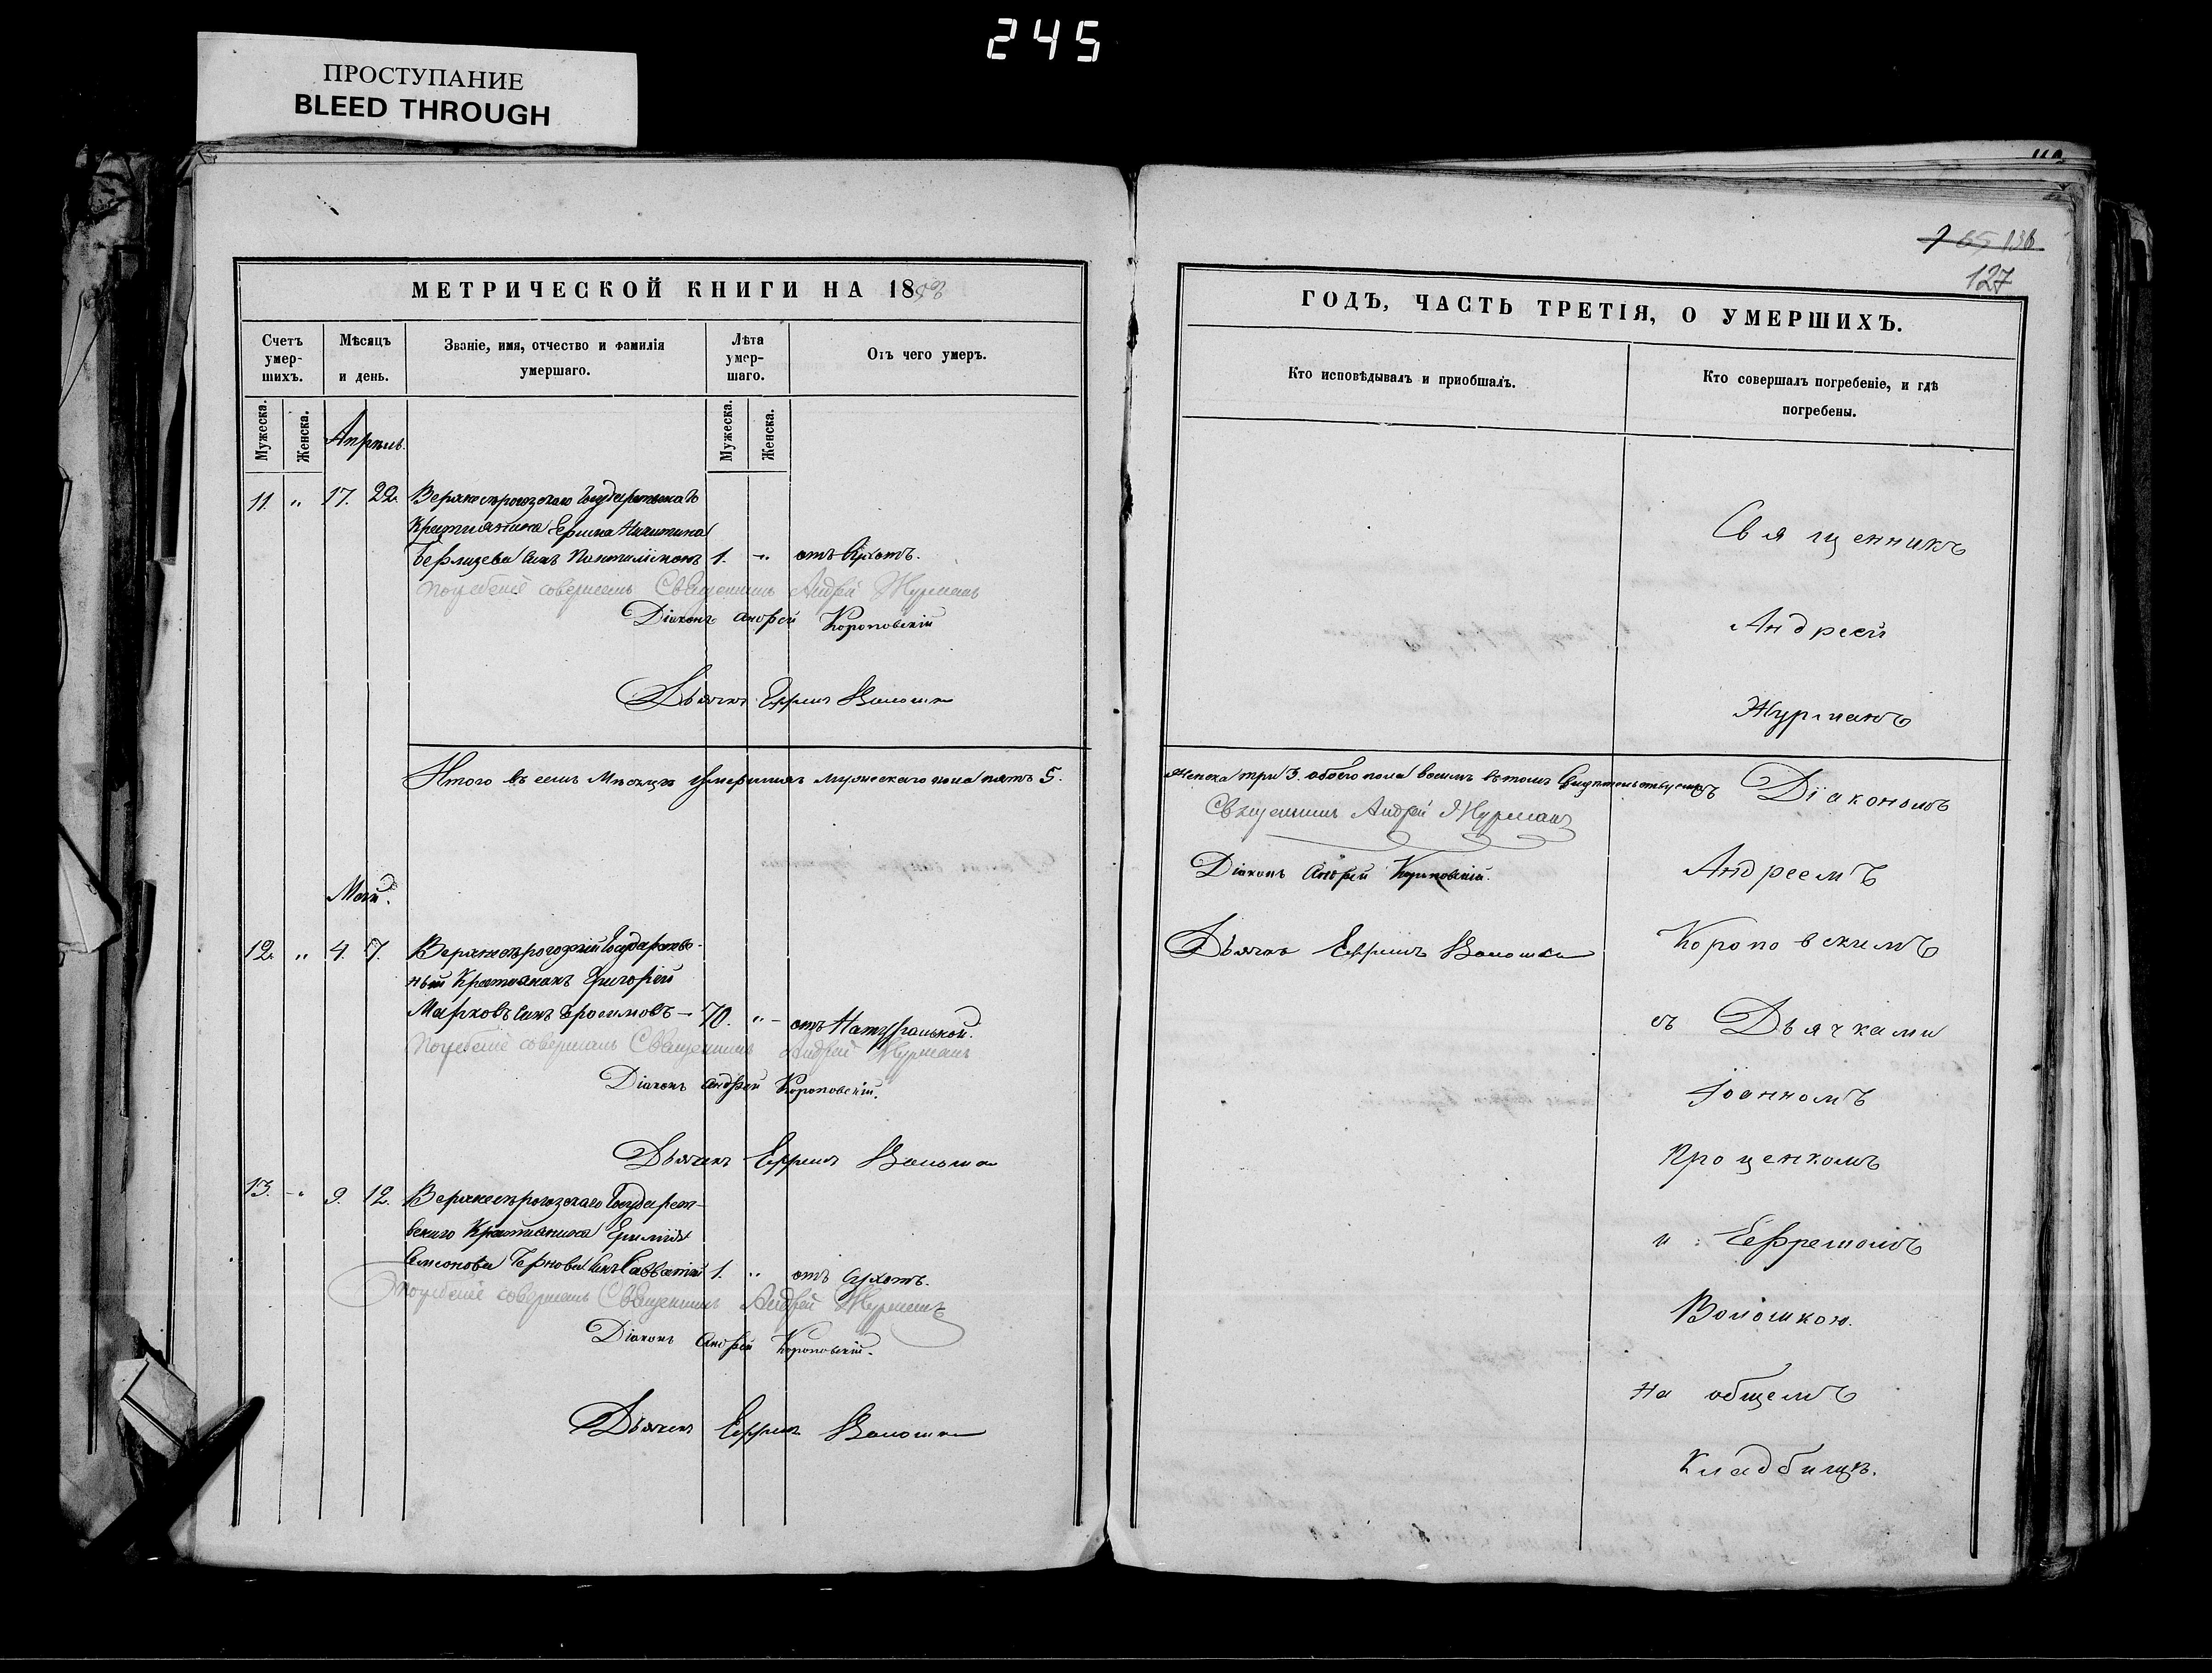 245
ПРОСТУПАНИЕ
BLEED THROUGH
МЕТРИЧЕСКОЙ КНИГИ НА 1853
Счетъ умер-шихъ.
Мѣсяцъ и день.
Званіе, имя, отчество и фамилія умершаго.
Лѣта умер-шаго.
Отъ чего умеръ.
Мужеска.
Женска.
Мужеска.
Женска.
Апрѣль.
11. " 17. 22. Верхнесѣрогозскаго Государственнаго
Крестьянина Ефима Никитина
сынъ Пантилімонъ 1. " отъ Сухотъ.
Погребеніе совершалъ Священникъ Андрей Журманъ
Діаконъ Андрей Короповскій
Дьячекъ Ефремъ Волошка
Итого въ семъ Мѣсяцѣ умершихъ мужескаго пола пять 5.
Май.
12. " 4. 7. Верхнесѣрогозскій Государствен-
ный Крестьянинъ Григорій
Марковъ сынъ 70. " отъ Натуральной.
Погребеніе совершалъ Священникъ Андрей Журманъ
Діаконъ Андрей Короповскій.
Дьячекъ Ефремъ Волошка
13. " 9. 12. Верхнесѣрогозскаго Государст-
веннаго Крестьянина
Семенова сынъ Савватій 1. " отъ Сухотъ.
Погребеніе совершалъ Священникъ Андрей Журманъ
Діаконъ Андрей Короповскій.
Дьячекъ Ефремъ Волошка
136
127
ГОДЪ, ЧАСТЬ ТРЕТІЯ, О УМЕРШИХЪ.
Кто исповѣдывалъ и пріобщалъ.
Кто совершалъ погребеніе, и гдѣ погребены.
Священникъ
Андреей
Журманъ
женска три 3. обоего пола восемь въ томъ свидѣтельствуемъ
Священникъ Андрей Журманъ
Діаконъ Андрей Короповскій.
Дьячекъ Ефремъ Волошка
Діакономъ
Андреемъ
Короповскимъ
съ Дьячками
Іоанномъ
Проценкомъ
и Ефремомъ
Волошкою.
На общемъ
Кладбищѣ.